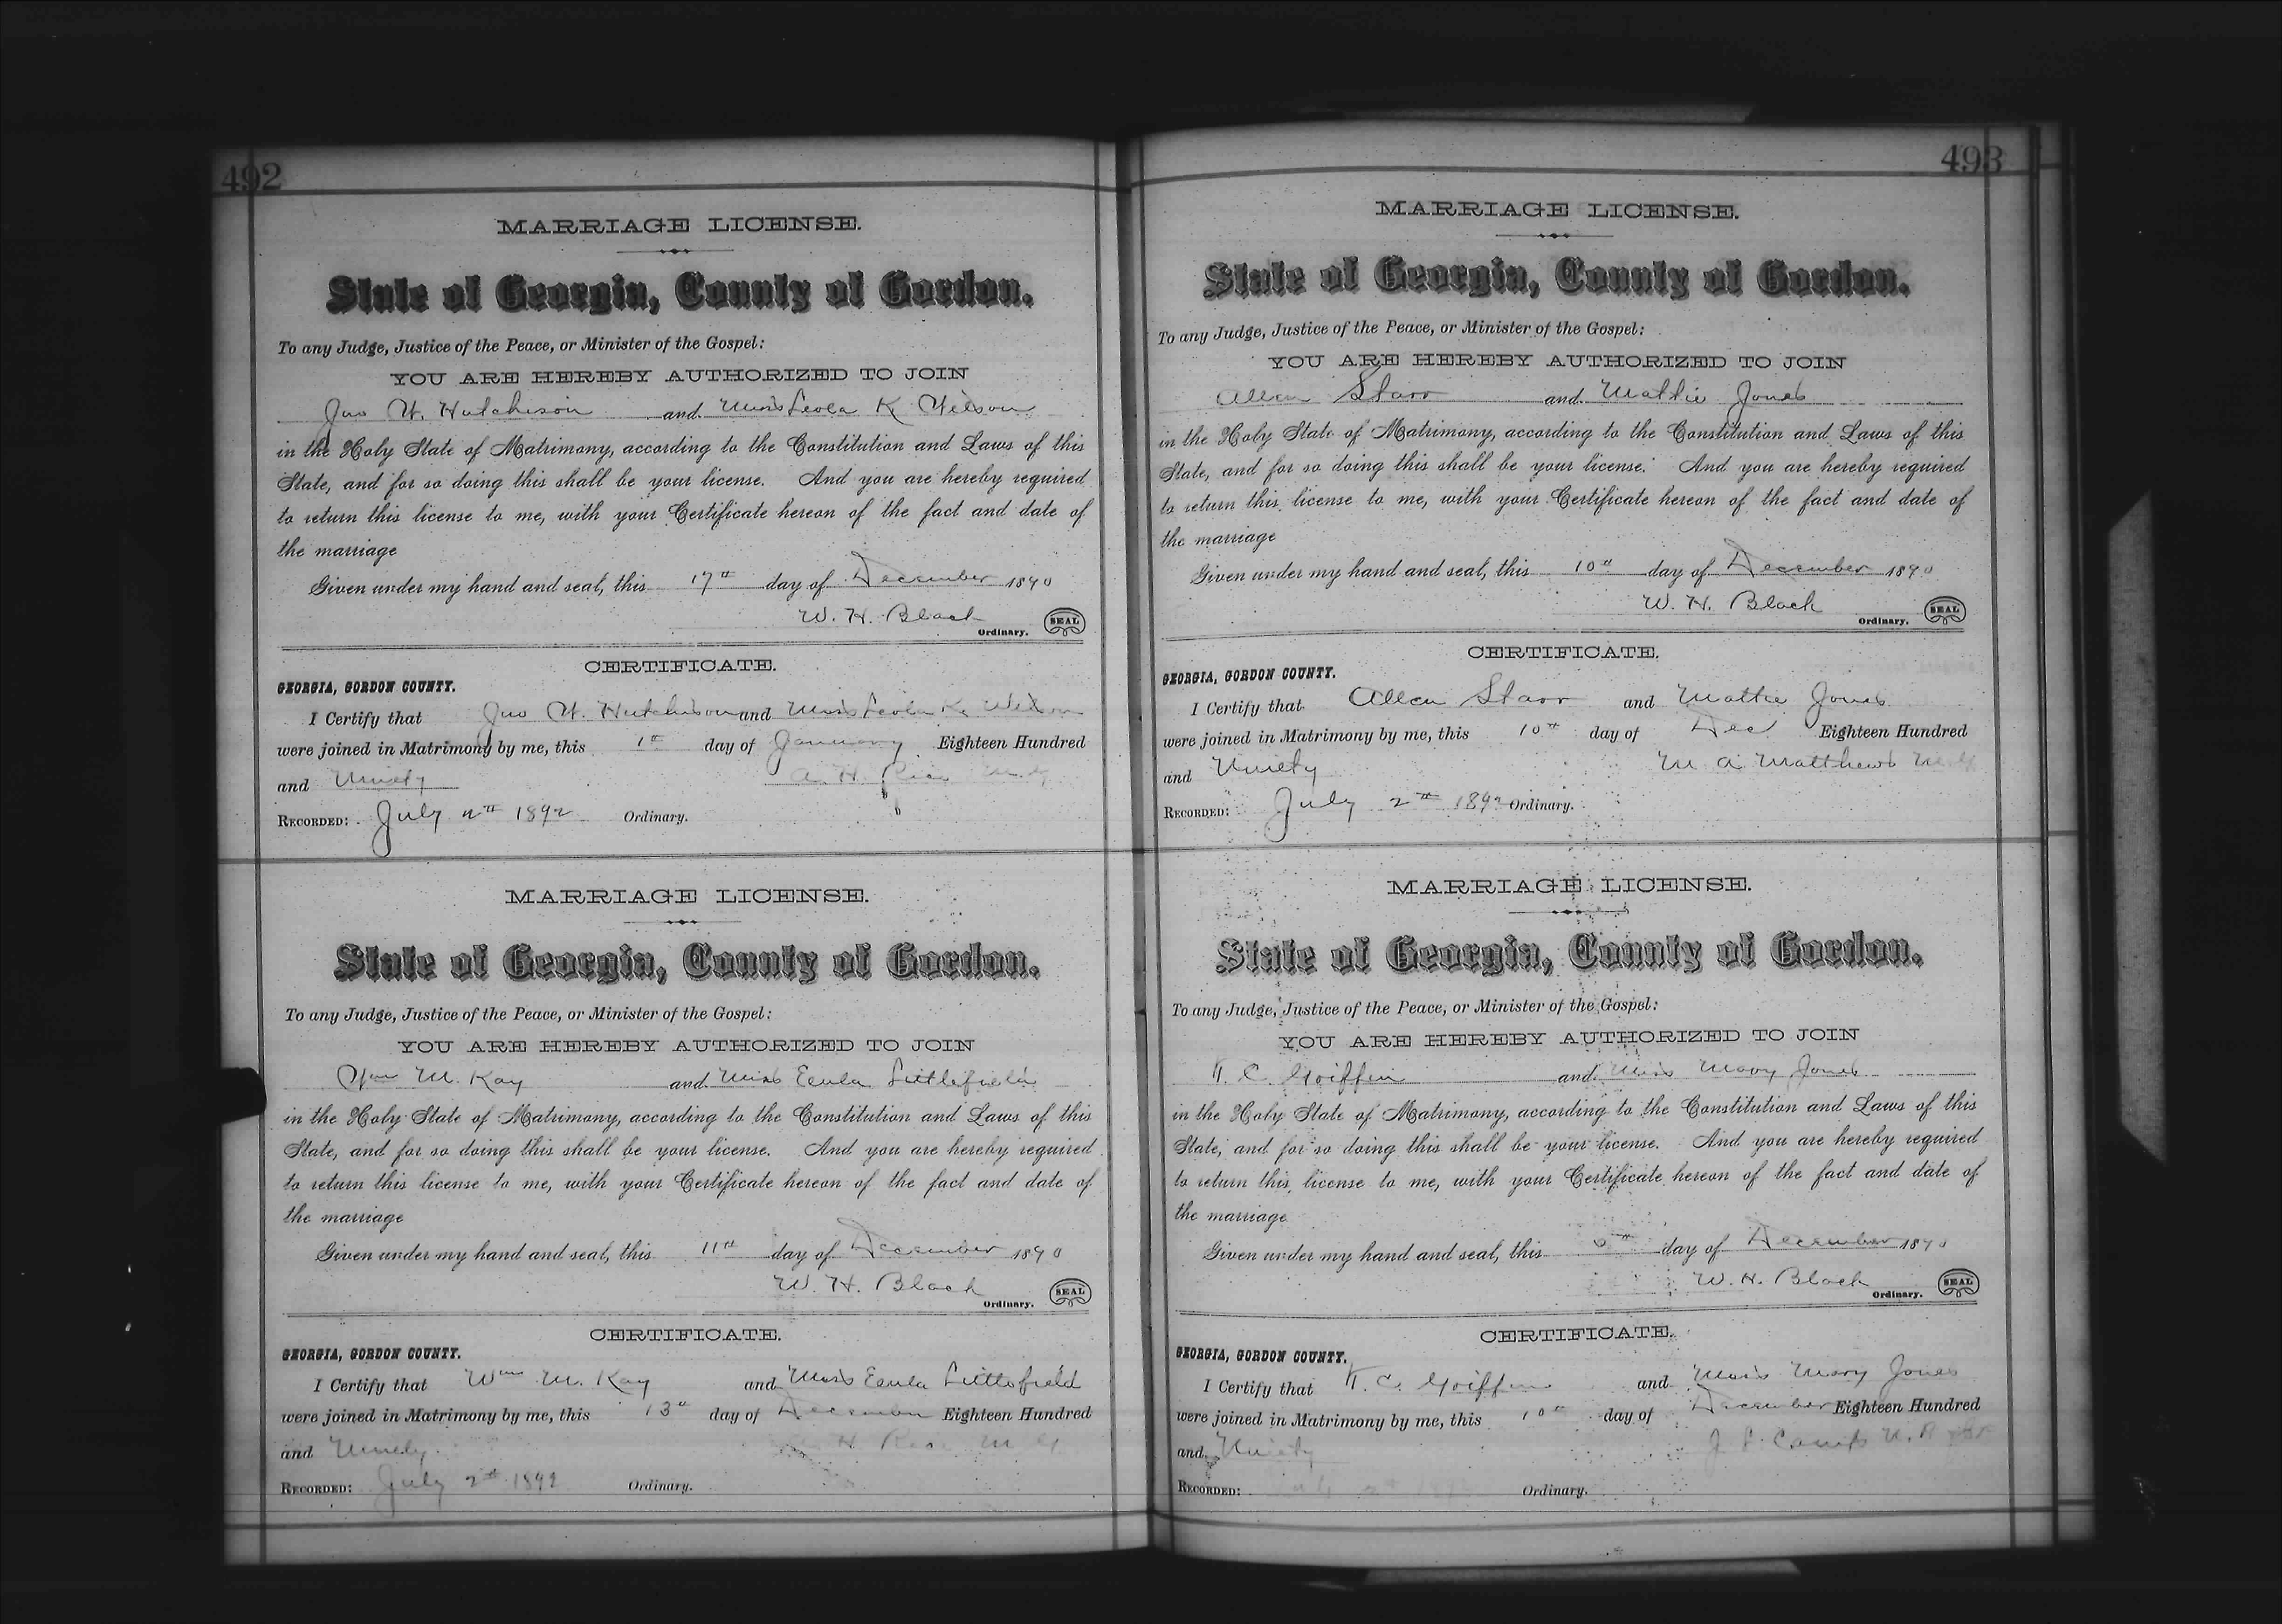 492
MARRIAGE LICENSE.
State of Georgia, County of Gordon.
To any Judge, Justice of the Peace, or Minister of the Gospel:
YOU ARE HEREBY AUTHORIZED TO JOIN
Jno W. Hutchison and Miss Leola K Wilson
in the Holy State of Matrimony, according to the Constitution and Laws of this
State, and for so doing this shall be your license. And you are hereby required
to return this license to me, with your Certificate hereon of the fact and date of
the marriage
Given under my hand and seal, this 17th day of December 1890
W. H. Black
Ordinary. SEAL
CERTIFICATE.
GEORGIA, GORDON COUNTY.
I Certify that Jno W. Hutchison and Miss Leola K. Wilson
were joined in Matrimony by me, this 1st day of January Eighteen Hundred
and Ninety A. H. Rice M.G.
RECORDED: July 2nd 1892 Ordinary.
MARRIAGE LICENSE.
State of Georgia, County of Gordon.
To any Judge, Justice of the Peace, or Minister of the Gospel:
YOU ARE HEREBY AUTHORIZED TO JOIN
Wm M. Kay and Miss Eeula Littlefield
in the Holy State of Matrimony, according to the Constitution and Laws of this
State, and for so doing this shall be your license. And you are hereby required
to return this license to me, with your Certificate hereon of the fact and date of
the marriage
Given under my hand and seal, this 11th day of December 1890
W. H. Black
Ordinary. SEAL
CERTIFICATE.
GEORGIA, GORDON COUNTY.
I Certify that Wm M. Kay and Miss Eeula Littlefield
were joined in Matrimony by me, this 13th day of December Eighteen Hundred
and Ninety H Rice M G
RECORDED: July 2nd 1892 Ordinary.
493
MARRIAGE LICENSE.
State of Georgia, County of Gordon.
To any Judge, Justice of the Peace, or Minister of the Gospel:
YOU ARE HEREBY AUTHORIZED TO JOIN
Allen Starr and Mattie Jones
in the Holy State of Matrimony, according to the Constitution and Laws of this
State, and for so doing this shall be your license. And you are hereby required
to return this license to me, with your Certificate hereon of the fact and date of
the marriage
Given under my hand and seal, this 10th day of December 1890
W. H. Black
Ordinary. SEAL
CERTIFICATE.
GEORGIA, GORDON COUNTY.
I Certify that Allen Starr and Mattie Jones
were joined in Matrimony by me, this 10th day of Dec Eighteen Hundred
and Ninety M A Matthews M G
RECORDED: July 2nd 1892 Ordinary.
MARRIAGE LICENSE.
State of Georgia, County of Gordon.
To any Judge, Justice of the Peace, or Minister of the Gospel:
YOU ARE HEREBY AUTHORIZED TO JOIN
C. Griffin and Miss Mary Jones
in the Holy State of Matrimony, according to the Constitution and Laws of this
State, and for so doing this shall be your license. And you are hereby required
to return this license to me, with your Certificate hereon of the fact and date of
the marriage
Given under my hand and seal, this day of December 1890
W. H. Black
Ordinary. SEAL
CERTIFICATE.
GEORGIA, GORDON COUNTY.
I Certify that C. Griffin and Miss Mary Jones
were joined in Matrimony by me, this 10th day of December Eighteen Hundred
and Ninety J
RECORDED: Ordinary.